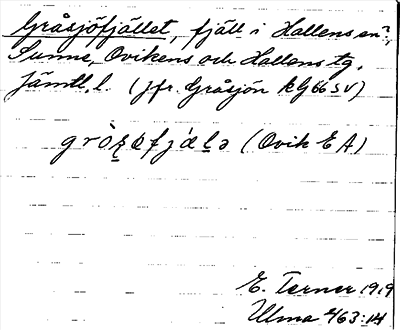 Gråsjöfjället, fjäll i Hallens sn?,
Sunne, Ovikens och Hallens tg,
Jämtl. l. (jfr. Gråsjön RG66SV)
(Ovik E A)
E. Terner 1919
Ulma 463:14